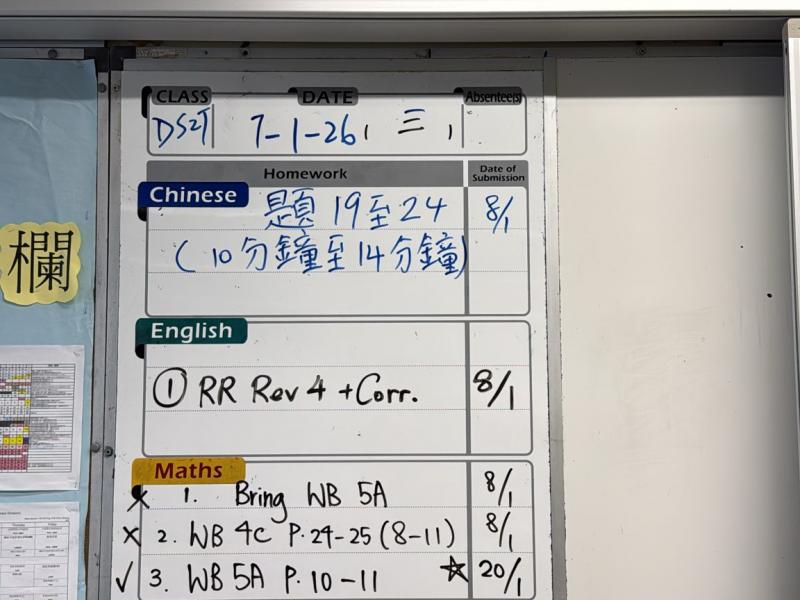 CLASS DATE Absentee(s)
DS2T 7-1-26, 三,
Homework Date of Submission
Chinese
題19至24 8/1
(10分鐘至14分鐘)
English
① RR Rev 4 + Corr. 8/1
Maths
✗ 1. Bring WB 5A 8/1
✗ 2. WB 4C P.24-25 (8-11) 8/1
✓ 3. WB 5A P.10-11 ☆ 20/1
欄